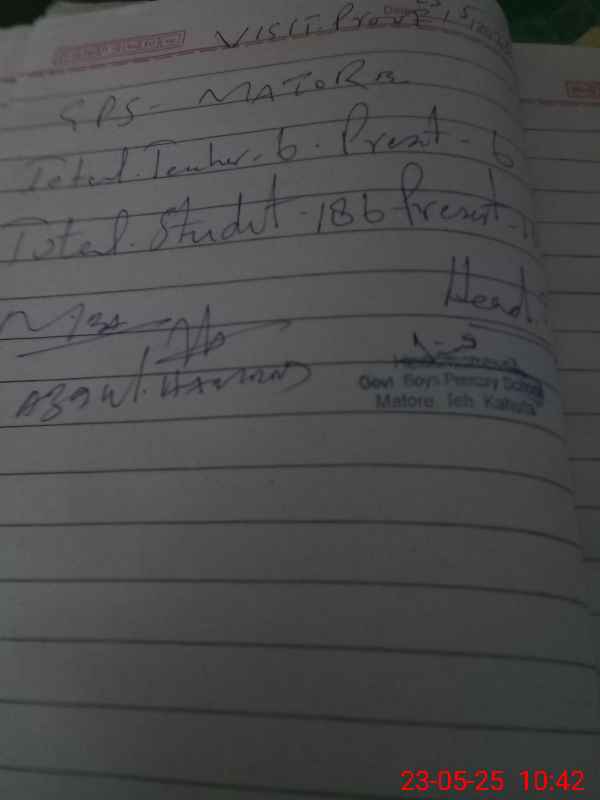 VISIT. Prove 23/5/2025
GPS - MATORE
Total. Teacher. 6. Present - 6
Total. Student - 186 Present - 1
Head
Govt Boys Primary School
Matore Teh Kahuta
23-05-25 10:42